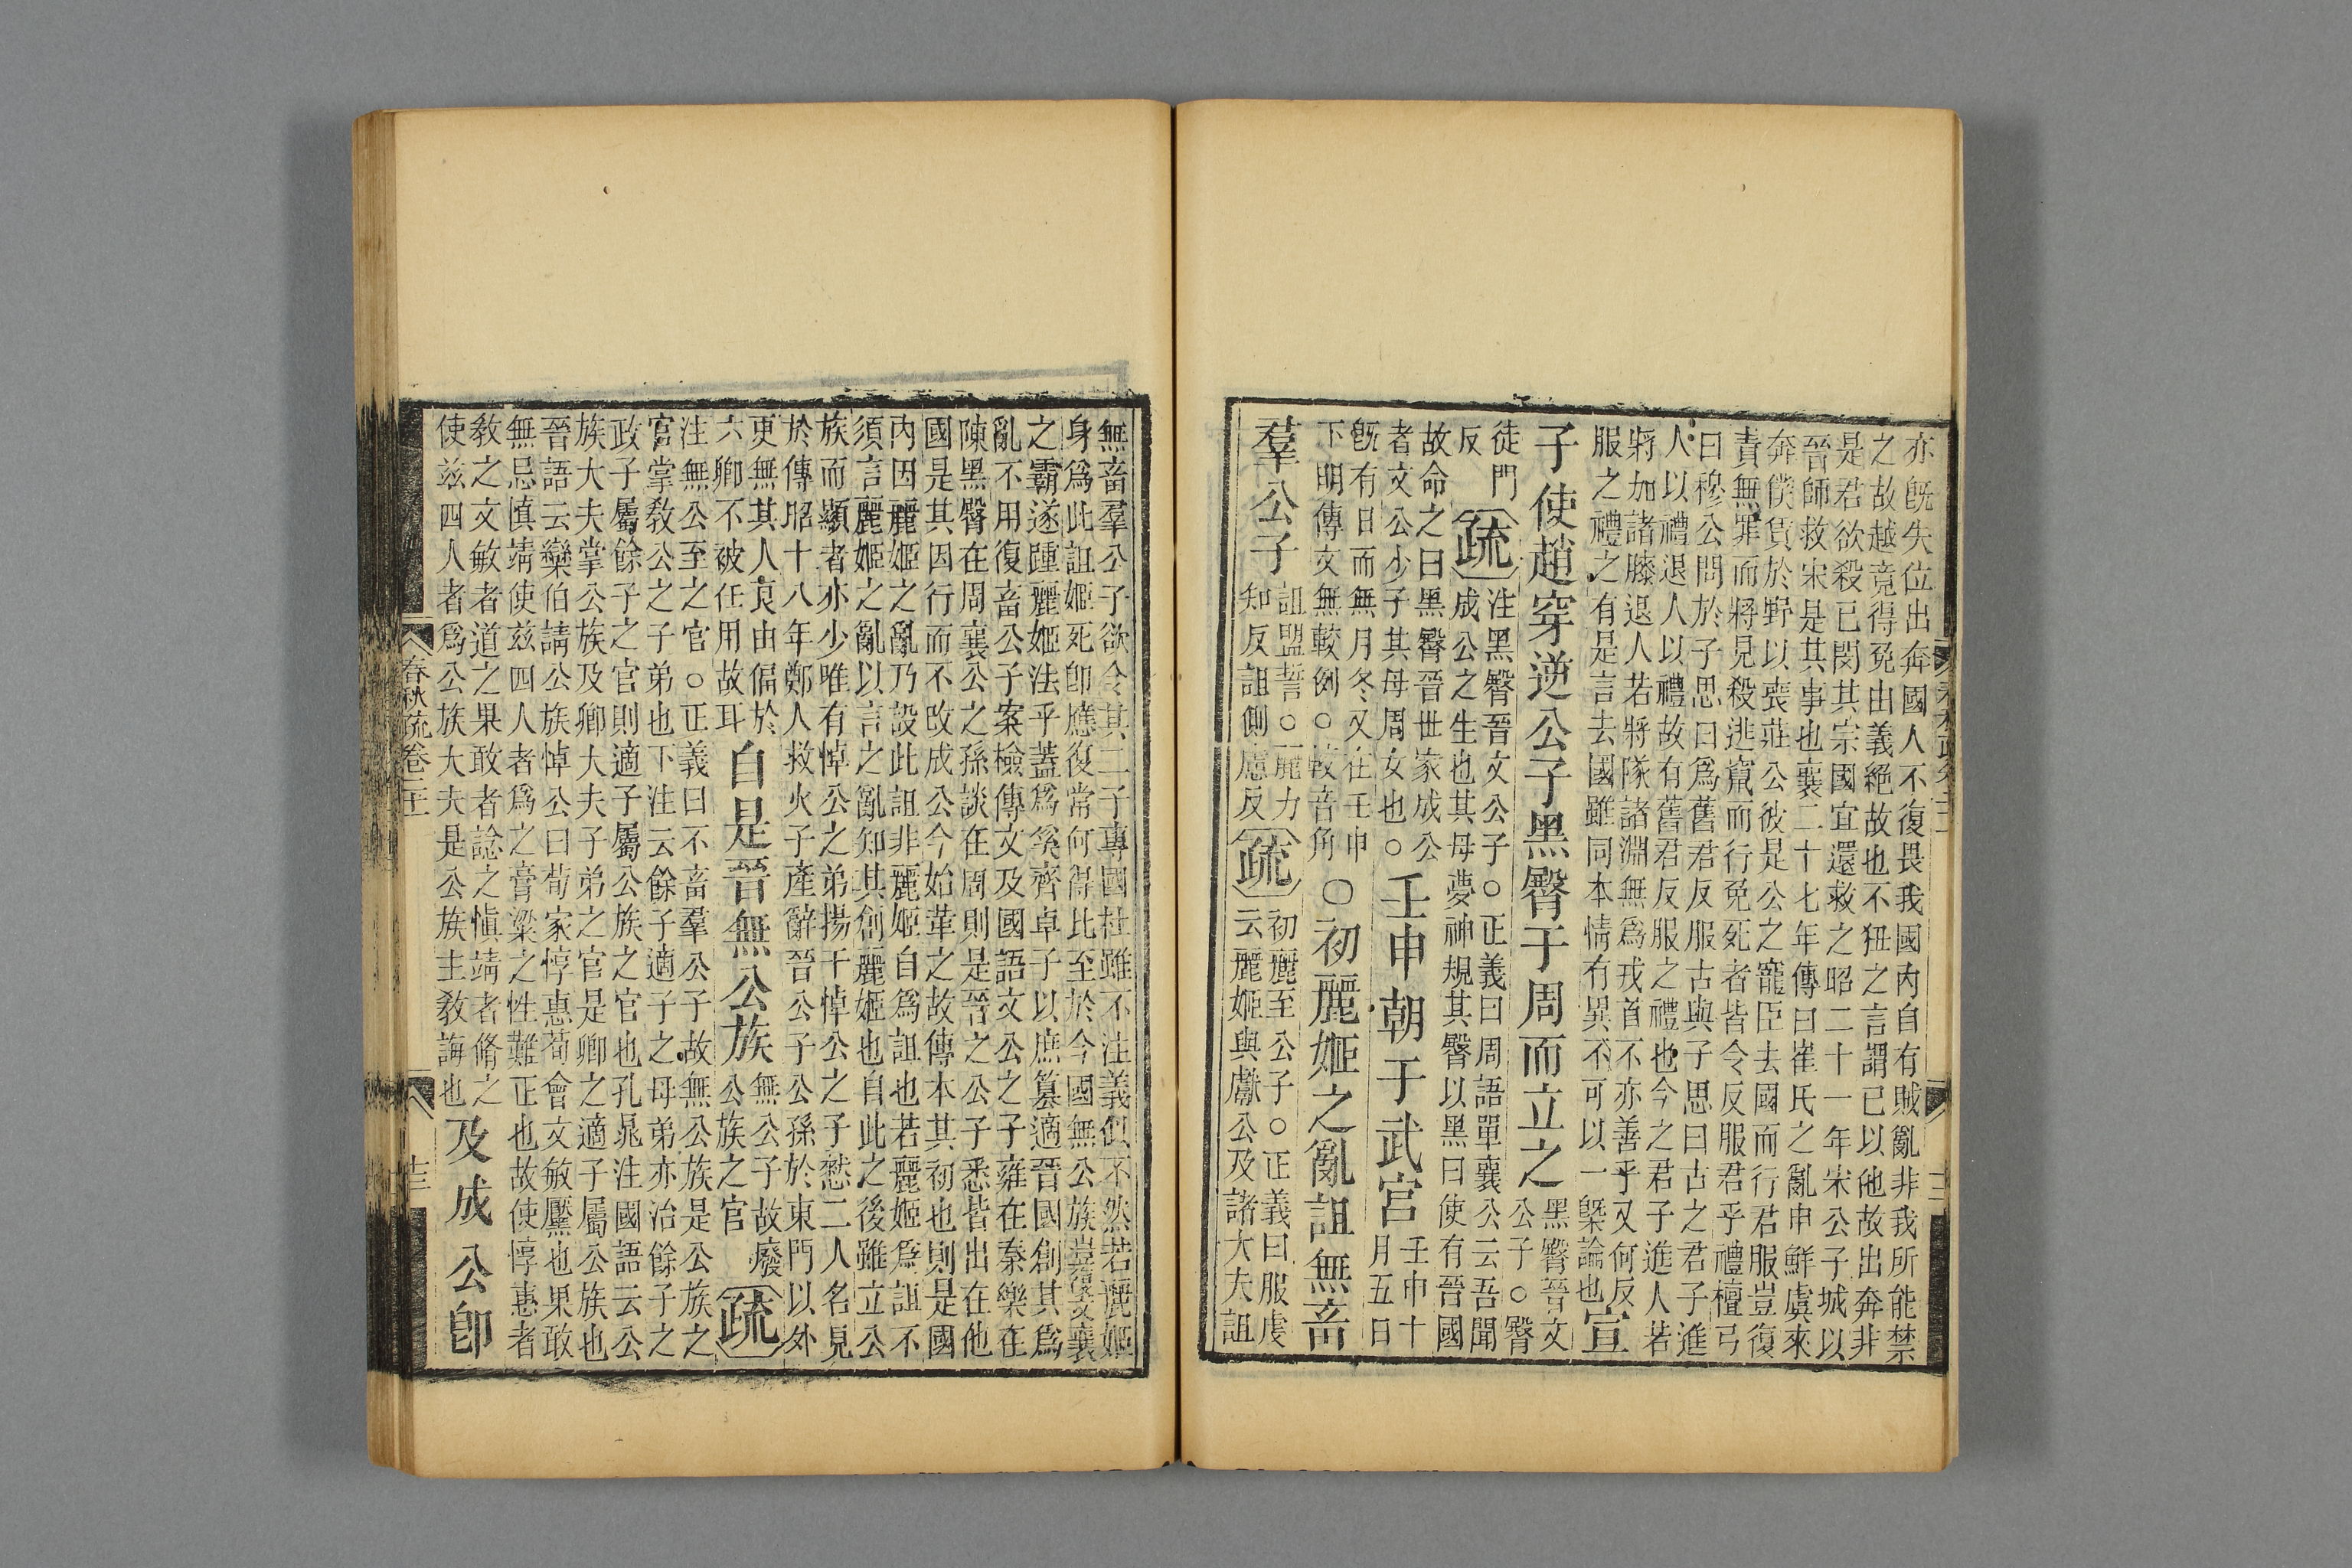 亦旣失位出奔國人不復畏我國內自有賊亂非我所能禁
之故越竟得免由義絕故也不狃之言謂已以他故出奔非
是君欲殺已閔其宗國宜還救之昭二十一年宋公子城以
晉師救宋是其事也襄二十七年傳曰崔氏之亂申鮮虞來
奔僕賃於野以喪莊公彼是公之寵臣去國而行君服豈復
責無罪而將見殺逃竄而行免死者皆令反服君乎禮檀弓
曰穆公問於子思曰爲舊君反服古與子思曰古之君子進
人以禮退人以禮故有舊君反服之禮也今之君子進人若
將加諸膝退人若將隊諸淵無爲戎首不亦善乎又何反
服之禮之有是言去國雖同本情有異不可以一槩論也
宣
子使趙穿逆公子黑臀于周而立之
黑臀晉文
公子○臀
徒門
反
疏
注黑臀晉文公子○正義曰周語單襄公云吾聞
成公之生也其母夢神規其臀以黑曰使有晉國
故命之曰黑臀晉世家成公
者文公少子其母周女也○
壬申朝于武宮
壬申十
月五日
旣有日而無月冬又在壬申
下明傳文無較例○較音角
○初麗姬之亂詛無畜
羣公子
詛盟誓○麗力
知反詛側慮反
疏
初麗至公子○正義曰服虔
云麗姬與獻公及諸大夫詛
無畜羣公子欲令其二子專國杜雖不注義似不然若麗姬
身爲此詛姬死卽應復常何得比至於今國無公族豈復文襄
之霸遂踵麗姬法乎蓋爲奚齊卓子以庶篡適晉國創其爲
亂不用復畜公子案檢傳文及國語文公之子雍在秦樂在
陳黑臀在周襄公之孫談在周則是晉之公子悉皆出在他
國是其因行而不改成公今始革之故傳本其初也則是國
內因麗姬之亂乃設此詛非麗姬自爲詛也若麗姬爲詛不
須言麗姬之亂以言之亂知其創麗姬也自此之後雖立公
族而顯者亦少唯有悼公之弟揚干悼公之子憖二人名見
於傳昭十八年鄭人救火子產辭晉公子公孫於東門以外
更無其人良由偪於
六卿不被任用故耳
自是晉無公族
無公子故廢
公族之官
疏
注無公至之官○正義曰不畜羣公子故無公族是公族之
官掌教公之子弟也下注云餘子適子之母弟亦治餘子之
政子屬餘子之官則適子屬公族之官也孔晁注國語云公
族大夫掌公族及卿大夫子弟之官是卿之適子屬公族也
晉語云欒伯請公族悼公曰荀家惇惠荀會文敏黶也果敢
無忌慎靖使兹四人者爲之膏粱之性難正也故使惇惠者
教之文敏者道之果敢者諗之愼靖者脩之
使兹四人者爲公族大夫是公族主教誨也
及成公卽
春秋疏卷二十一
十三